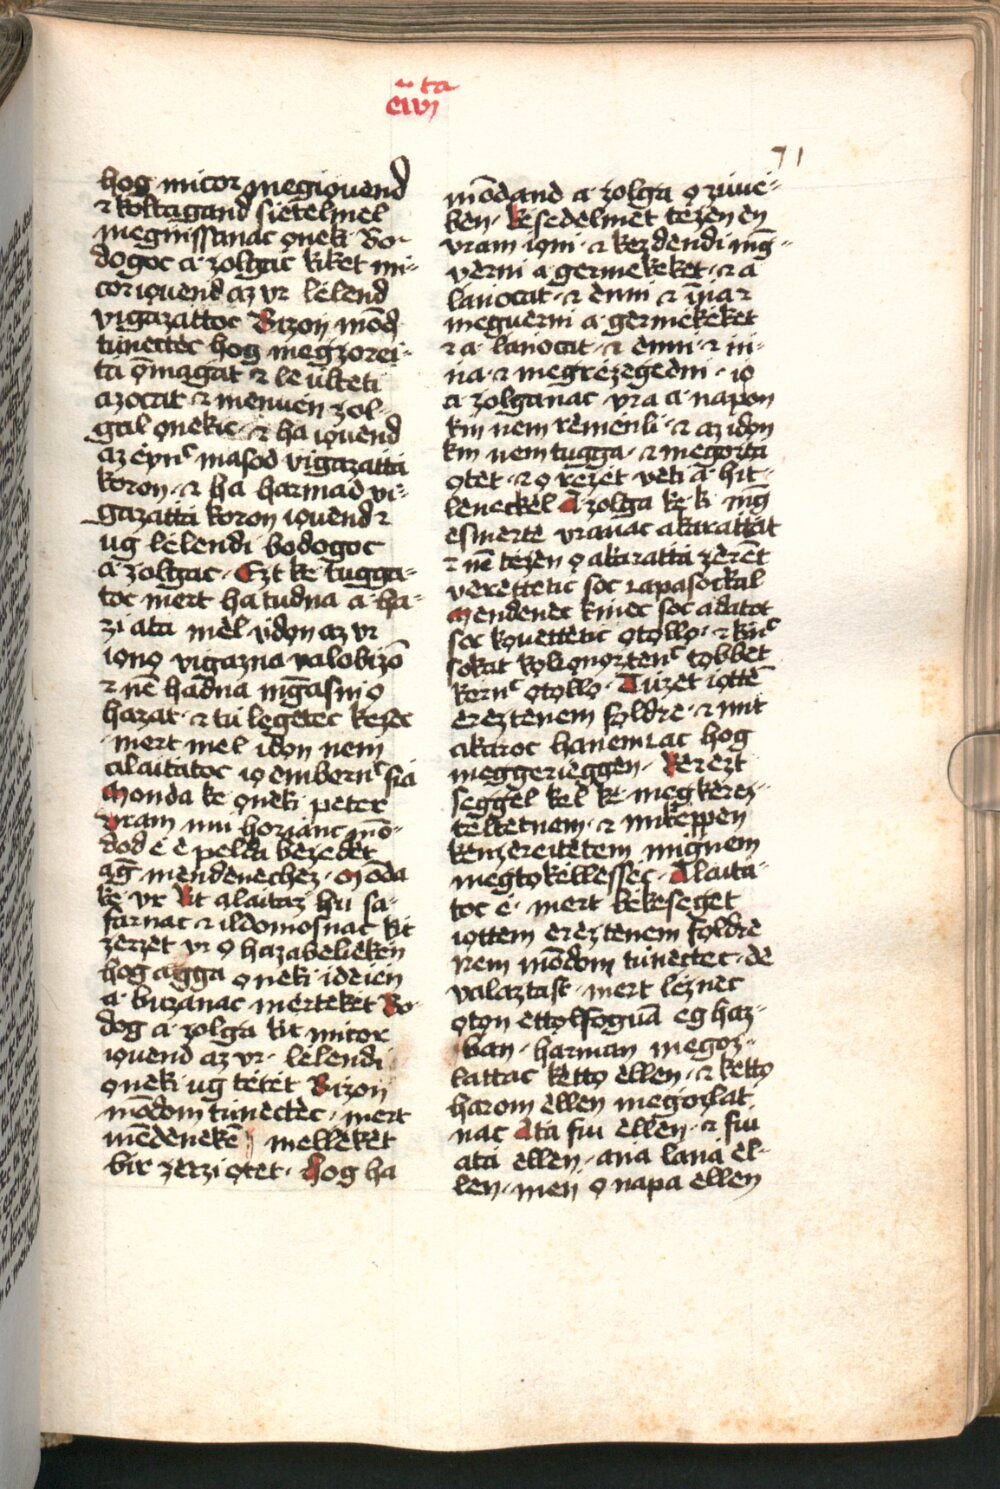 ēıvӡ ta
71
hog micor megiouend
ꝛ koltagand sietelmel
megnissanac onèki Bo-
dogoc a· zolgac kiket mi-
cor iouend az vr lèlend
vigazattoc Bizon mōd
tunectec hog megzorei-
ta ōmagat ꝛ le ülteti
azocat ꝛ menuèn zol-
gal onèkic· ꝛ ha iouend
az eync masod vigazatta
koron· ꝛ ha harmad vi-
gazatta koron iouend ꝛ
ug lèlendi bodogoc
a· zolgac· Ezt ke tugga-
toc mert ha tudna a· ha-
zi ata mèl ydon az vr
iono vigazna valobizō
ꝛ nē hadna mḡasni o
hazat· ꝛ tü legetec kesec
mert mel idon nem
alaitatoc io embernc fia
Monda ke oneki peter
Vram mü hozianc mō-
dod è è pelda bezedèt
aḡ mendenechez· Mōda
ke vr kit alaitaz hü sa-
farnac ꝛ ildomosnac kit
zerzèt vr o hazabelieken
hog agga onèki ideien
a· buzanac mèrteket Bo-
dog a· zolga kit micor
iouend az vr· lèlendi
onèki ug tètèt Bizon
mōdom tünectec· mert
mēdenekē mellekèt
bir zerzi otèt· Hog ha
mōdand a· zolga o züue-
ben· kesedelmèt tèzèn èn
vram ioni· ꝛ kezdendi mḡ-
verni a germekeket· ꝛ a
lanocat· ꝛ ènni ꝛ īnia ꝛ
meguerni a· germèkèket
ꝛ a· lanocat· ꝛ ènni· ꝛ in-
na· ꝛ megrèzegèdni· io
a zolganac· vra a· napon
kin nem rèmenli· ꝛ az idon
kin nem tugga· ꝛ megozta
otèt· ꝛ o rèzèt veti a· hit-
lèneckèl A zolga ke ki mḡ
esmerte vranac akarattat
ꝛ nē tezen o akaratta zèrènt
verettetic soc zapasockal
Mendenec kinec soc adatot
soc kouettetic otollo· ꝛ kinc
sokat kolionoztenc tobbet
kernc otollo· Tüzet iottē
ereztenem foldre· ꝛ mit
akaroc hanemzac hog
meggerieggen· kerezt
seggèl kel ke· megkèrez-
tèltetnem· ꝛ mikeppen
kenzereitètem mignem
megtokèllèssec· Alaita-
toc è· mert bèkeseget
iottem ereztenem foldre
Nem mōdom tünectec· de
valaztast· mert lèznec
oton ettolfoguā eg haz-
ban· harman megoz-
lattac kètto ellen· ꝛ kètto
harom ellen megozlat
nac Ata fiu ellen· ꝛ fiu
ata ellen· ana lana èl-
len· men o napa ellen